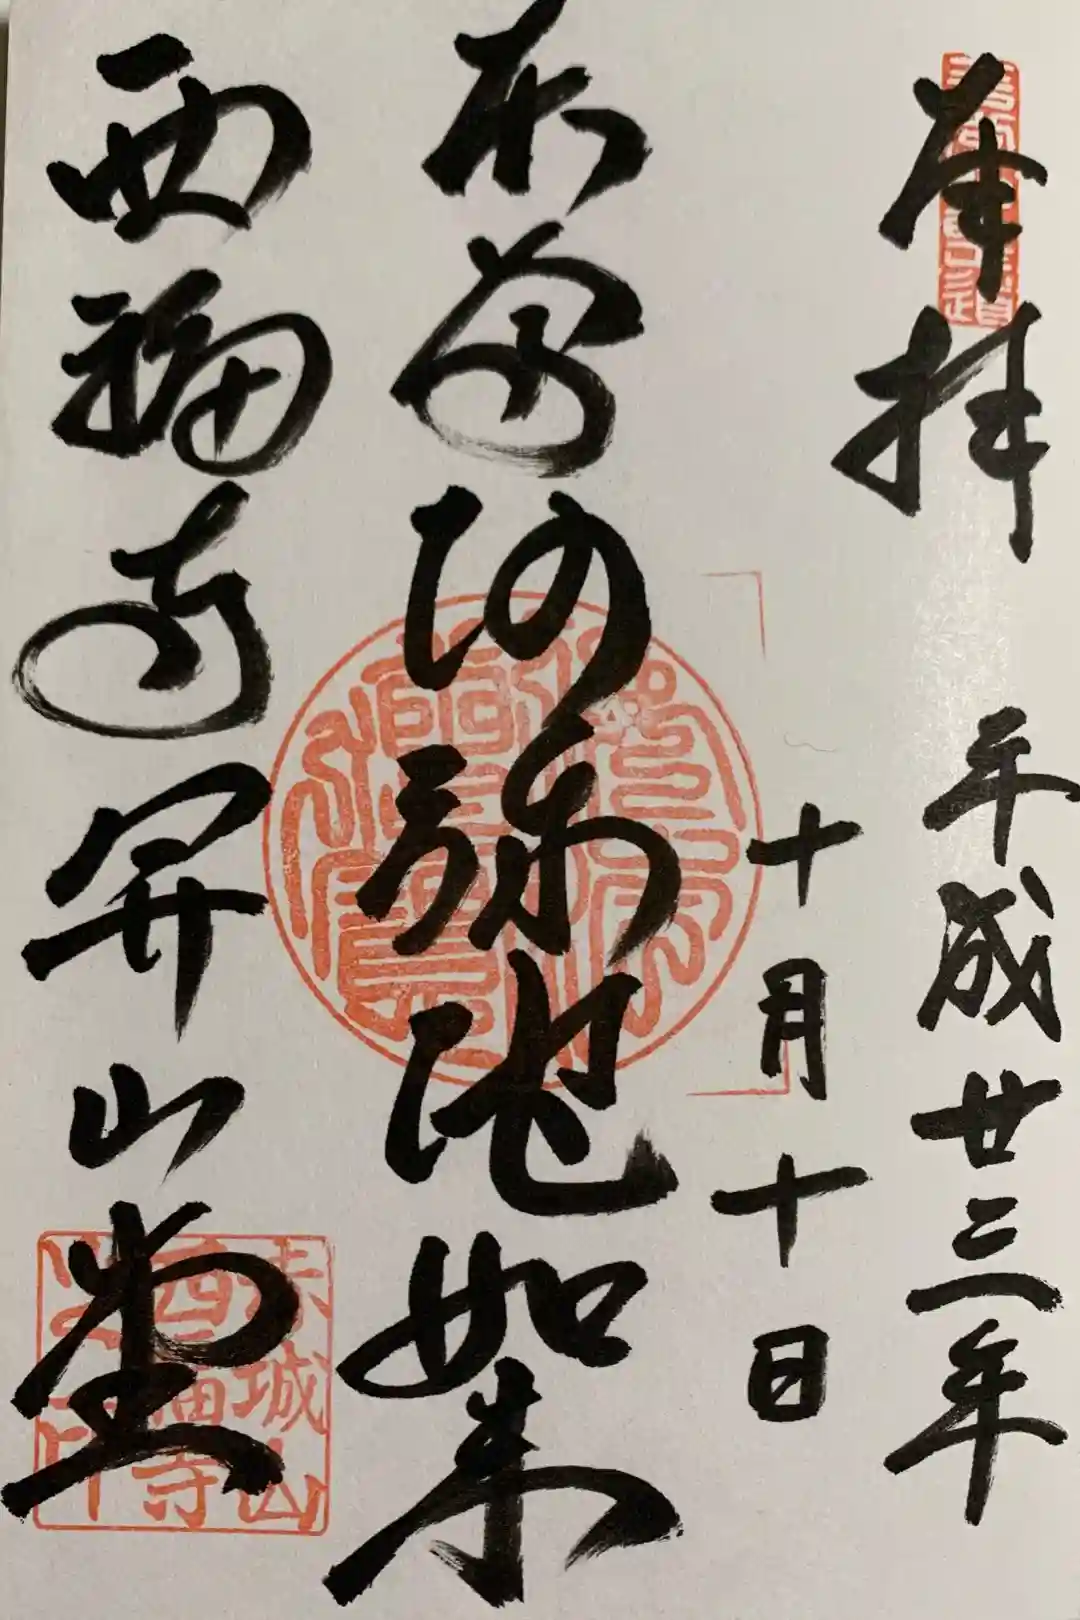 奉拝
平成廿三年
十月十日
本尊阿弥陀如来
西福寺開山堂
赤城山
西福寺
之印